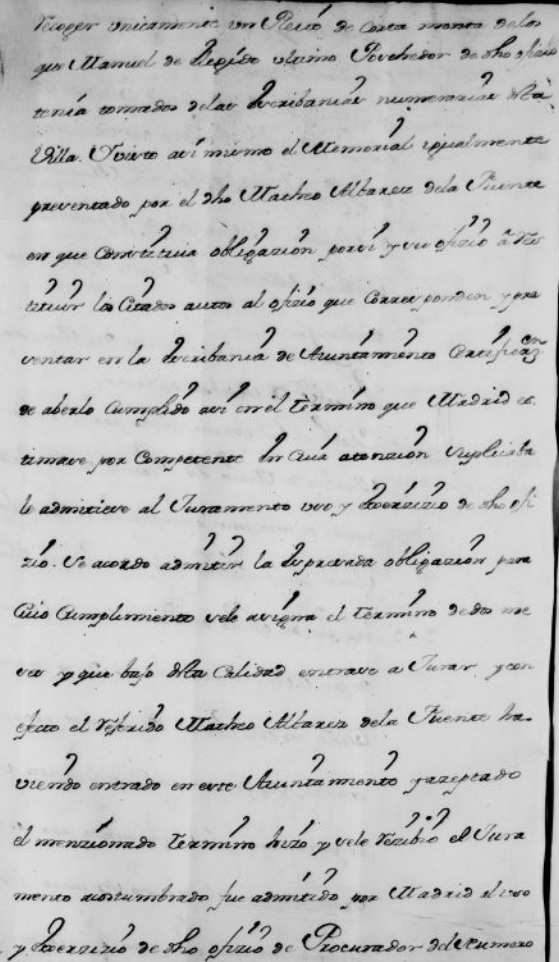 recoger unicamente un Pleito de corta monta de los
que Manuel de Repido ultimo Posehedor de dho ofizio
tenia tomados delas Escribanias numerarias desta
Villa. Visto asi mismo el Memorial igualmente
presentado por el dho Matheo Albarez dela Fuente
en que Constituia obligazion porsi y su ofizio à res
tituir los Citados autos al ofizio que Corresponden y pre
sentar en la Escribania de Aiuntamiento Certificazon
de aberlo Cumplido asi en el termino que Madrid es
timase por Competente En Cuia atenzion suplicaba
le admitiese al Juramento uso y Exerzizio de dho ofi
zio. Se acordo admitir la Expresada obligazion para
Cuio Cumplimiento sele asigna el termino de dos me
ses y que bajo desta Calidad entrase a Jurar y con
efecto el referido Matheo Albarez dela Fuente ha-
viendo entrado en este Aiuntamiento y azeptado
el menzionado termino hizo y sele rezibio el Jura
mento acostumbrado fue admitido por Madrid al uso
y Exerzizio de dho ofizio de Procurador del Numero